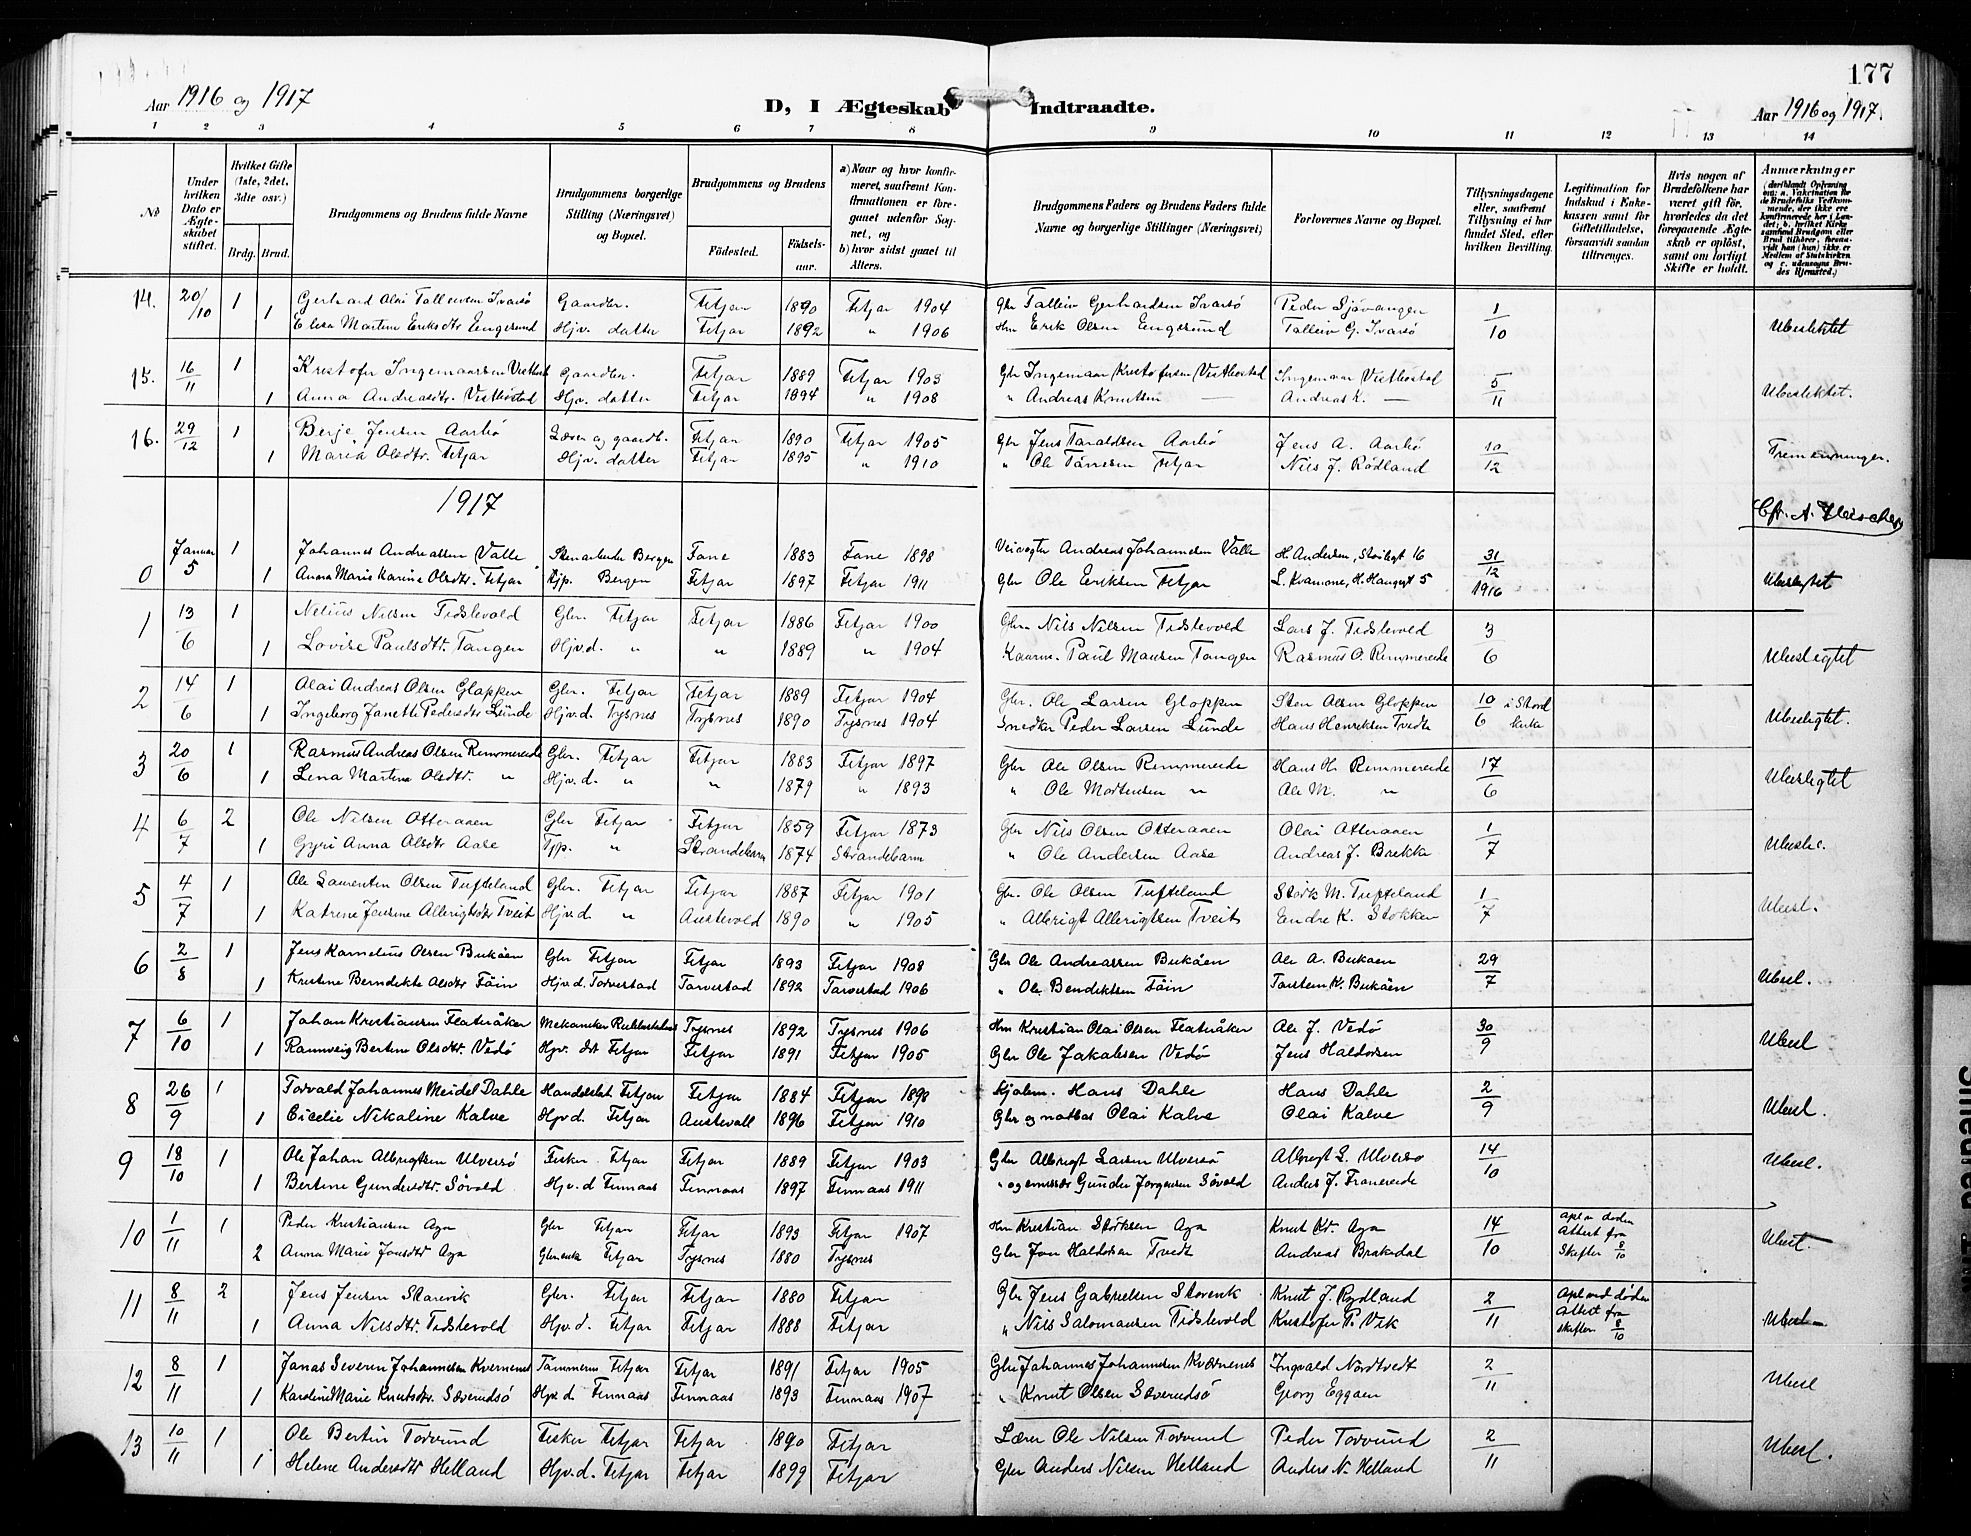 177
Aar 1916 og 1917
D, I Ægteskab Indtraadte.
Aar 1916 og 1917.
1 2 3 4 5 6 7 8 9 10 11 12 13 14
No
Under hvilken Dato er Ægteskabet stiftet.
Hvilket Gifte (1ste, 2det, 3die osv.)
Brdg. Brud.
Brudgommens og Brudens fulde Navne
Brudgommens borgerlige Stilling (Næringsvei) og Bopæl.
Brudgommens og Brudens
Fødested. Fødselsaar.
a) Naar og hvor konfirmeret, saafremt Konfirmationen er foregaaet udenfor Sognet, og
b) hvor sidst gaaet til Alters.
Brudgommens Faders og Brudens Faders fulde Navne og borgerlige Stillinger (Næringsvei)
Forlovernes Navne og Bopæl.
Tillysningsdagene eller, saafremt Tillysning ei har fundet Sted, efter hvilken Bevilling.
Legitimation for Indskud i Enkekassen samt for Giftetilladelse, forsaavidt saadan tiltrænges.
Hvis nogen af Brudefolkene har været gift før, hvorledes da det foregaaende Ægteskab er opløst, samt om lovligt Skifte er holdt.
Anmærkninger
14. 20/10 1 Gerhard Olai Talleivsen Ivarsö Gaardbr. Fitjar 1890 Fitjar 1904 Gbr Talleiv Gerhardsen Ivarsö Peder Sjövangen 1/10 Ubeslektet
1 Elisa Martine Eriksdtr Engesund Hjv. datter Fitjar 1892 " 1906 Hm Erik Olsen Engesund Talleiv G. Ivarsö
15. 16/11 1 Kristofer Ingemaarsen Vestböstad Gaardbr. Fitjar 1889 Fitjar 1903 Gbr Ingemaar Kristofersen Vestböstad Ingemaar Vestböstad 5/11 Ubeslektet.
1 Anna Andreasdtr. Vestböstad Hjv. datter Fitjar 1894 " 1908 " Andreas Knutsen — Andreas K. —
16. 29/12 1 Berje Jensen Aarbö Lærer og gaardb. Fitjar 1890 Fitjar 1905 Gbr Jens Taraldsen Aarbö Jens A. Aarbö 10/12 Tremenninger.
1 Maria Olsdtr. Fitjar Hjv. datter Fitjar 1895 " 1910 " Ole Tönnesen Fitjar Nils J. Rödland
1917
Cfr. A. Fleischer
0 Januar 5 1 Johannes Andreassen Valle Stenarbeider Bergen Fane 1883 Fane 1898 Veivogter Andreas Johannesen Valle H. Andersen, 16 31/12 1916 Ubeslegtet
1 Anna Marie Karine Olsdtr. Fitjar Tjp. Bergen Fitjar 1897 Fitjar 1911 Gbr Ole Eriksen Fitjar L. Kvamone, H. Haugsgt 5
1 13/6 1 Nelius Nilsen Tidslevold Gbr. Fitjar Fitjar 1886 Fitjar 1900 Gbr. Nils Nilsen Tidslevold Lars J. Tidslevold 3/6 Ubeslegtet
1 Lovise Paulsdtr. Tangen Hjv.d. " " 1889 " 1904 Kaarm. Paul Monsen Tangen Rasmus O. Rimmereide
2 14/6 1 Olai Andreas Olsen Gloppen Gbr. Fitjar Fitjar 1889 Fitjar 1904 Gbr. Ole Larsen Gloppen Sten Olsen Gloppen 10/6 i Stord kirke Ubeslegtet.
1 Ingeborg Janette Pedersdtr Lunde Hjv.d. Tysnes Tysnes 1890 Tysnes 1904 Snedker Peder Larsen Lunde Hans Henriksen Tvedt
3 20/6 1 Rasmus Andreas Olsen Rimmereide Gbr. Fitjar Fitjar 1883 Fitjar 1897 Gbr Ole Olsen Rimmereide Hans H. Rimmereide 17/6 Ubeslegtet
1 Lina Martina Olsdtr. " Hjv.d. " " 1879 " 1893 " Ole Mortensen " Ole M. "
4 6/7 2 Ole Nilsen Otteraaen Gbr Fitjar Fitjar 1859 Fitjar 1873 Gbr Nils Olsen Otteraaen Olai Otteraaen 1/7 Ubesl.
1 Gyri Anna Olsdtr Aase Tjp. " Strandebarm 1874 Strandebarm " Ole Andersen Aase Andreas J. Brekke
5 4/7 1 Ole Laurentin Olsen Tufteland Gbr. Fitjar Fitjar 1887 Fitjar 1901 Gbr. Ole Olsen Tufteland Störk M. Tufteland 1/7 Ubesl.
1 Katrine Jensine Allerigtsdtr Tveit Hjv.d. " Austevold 1890 " 1905 " Albrigt Allerigtsen Tveit Endre K. Stokken
6 2/8 1 Jens Kornelius Olsen Bukåen Gbr Fitjar Fitjar 1893 Fitjar 1908 Gbr Ole Andreassen Bukåen Ole A. Bukaen 29/7 Ubesl.
1 Kristine Berndikte Olsdtr Föin Hjv.d. Torvestad Torvestad 1892 Torvestad 1906 " Ole Bendiktsen Föin Torstein K. Bukåen
7 6/10 1 Johan Kristiansen Flateråker Mekaniker Rubbestadnes Tysnes 1892 Tysnes 1906 Hm Kristian Olai Olsen Flateråker Ole J. Vedö 30/9 Ubesl
1 Rannveig Bertine Olsdtr. Vedö Hjv. dtr Fitjar Fitjar 1891 Fitjar 1905 Gbr Ole Jakobsen Vedö Jens Haldorsen
8 26/9 1 Torvald Johannes Meidel Dahle Handelsbet Fitjar Fitjar 1884 Fitjar 1898 Kjøbm. Hans Dahle Hans Dahle 2/9 Ubesl.
1 Cicelie Nikoline Kalve Hjv.d. Fitjar Austevoll 1896 Fitjar 1910 Gbr og notbas Olai Kalve Olai Kalve
9 18/10 1 Ole Johan Albrigtsen Ulversö Fisker. Fitjar Fitjar 1889 Fitjar 1903 Gbr Albrigt Larsen Ulversö Albrigt L. Ulversö 14/10 Ubesl.
1 Bertine Gundersdtr. Sövold Hjv.d Finnaas Finnaas 1897 Finnaas 1911 " og emissær Gunder Jorgensen Sövold Anders J. Franereide
10 1/11 1 Peder Kristiansen Aga Gbr Fitjar Fitjar 1893 Fitjar 1907 Hm Kristian Störksen Aga Knut Kr. Aga 14/10 Opl. v døden Attest fra Skifter. 8/10 Ubesl.
2 Anna Marie Jonsdtr Aga Gbr enke Fitjar Tysnes 1880 Tysnes Gbr Jon Haldorsen Tvedt Andreas Brakedal
11 8/11 2 Jens Jensen Storevik Gbr. Fitjar Fitjar 1880 Fitjar Gbr Jens Gabrielsen Storevik Knut J. Rydland 2/11 Opl ved døden Attest fra skifter. 8/10 Ubesl.
1 Anna Nilsdtr. Tidslevold Hjv.d. Fitjar Fitjar 1888 Fitjar " Nils Salomonsen Tidslevold Kristofer P. Vik
12 8/11 1 Jonas Severin Johannesen Kvernenes Tömmerm. Fitjar Fitjar 1891 Fitjar 1905 Gbr Johannes Johannesen Kværnenes Ingvald Nordtvedt 2/11 Ubesl
1 Karoline Marie Knutsdtr. Sæverudsö Hjv.d Finnaas Finnaas 1893 Finnaas 1907 " Knut Olsen Sæverudsö Georg Eggøen
13 10/11 1 Ole Bertin Torvund Fisker Fitjar Fitjar 1890 Fitjar Lærer Ole Nilsen Torvund Peder Torvund 2/11 Ubesl.
1 Helene Andersdtr Helland Hjv.d. Fitjar Fitjar 1899 Fitjar Gbr Anders Nilsen Helland Anders N. Helland